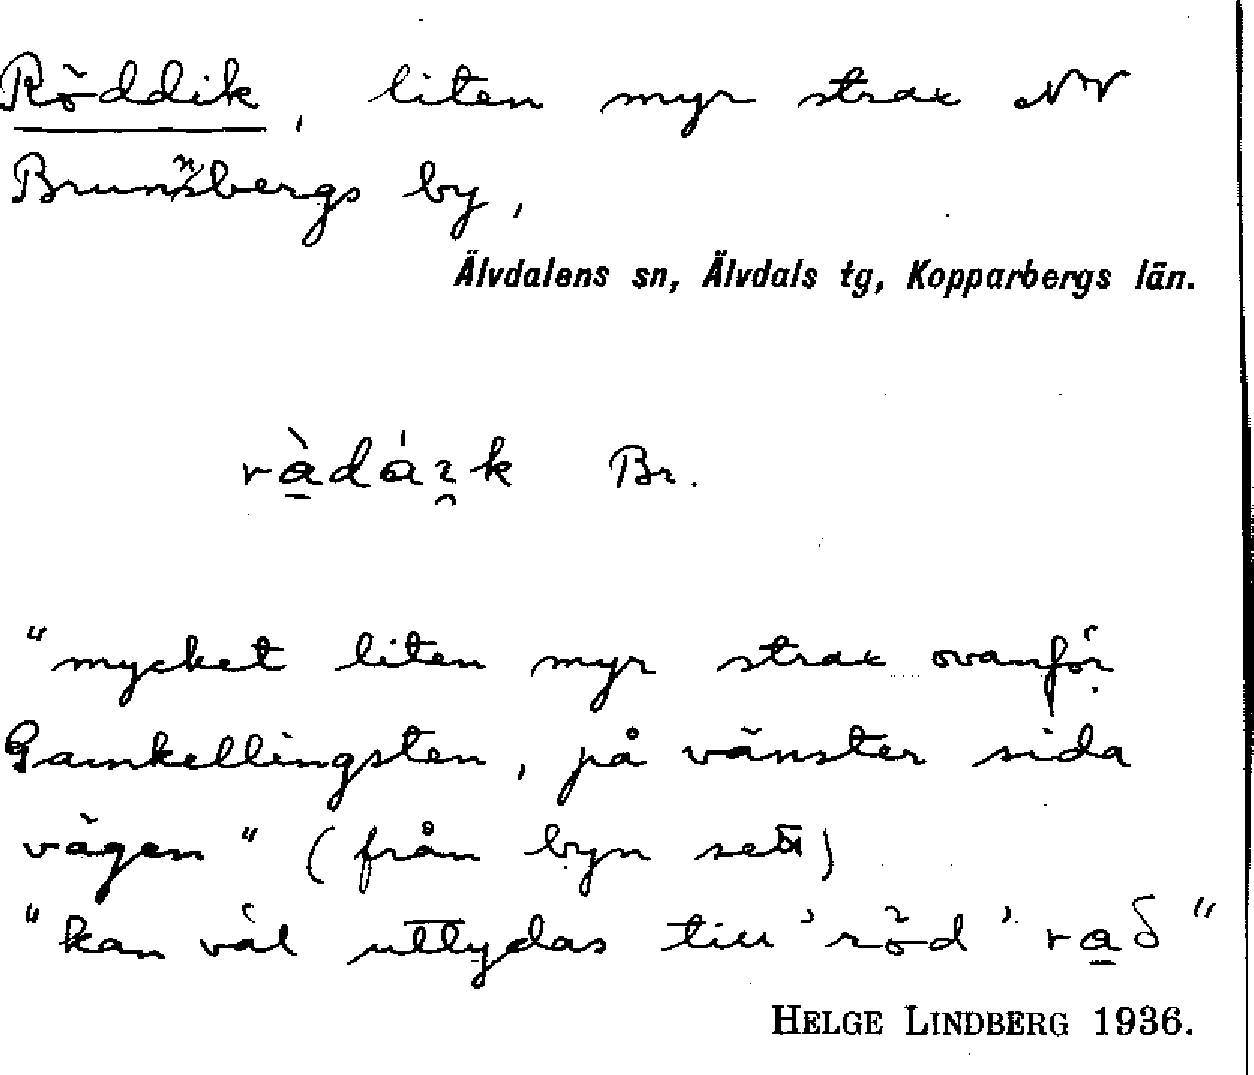 Röddik, liten myr strax NV
Brunnbergs by,
Älvdalens sn, Älvdals tg, Kopparbergs län.
Br.
"mycket liten myr strax ovanför
Gamkellingsten, på vänster sida
vägen" (från byn sett)
"kan väl uttydas till 'röd' ra̱δ"
HELGE LINDBERG 1936.